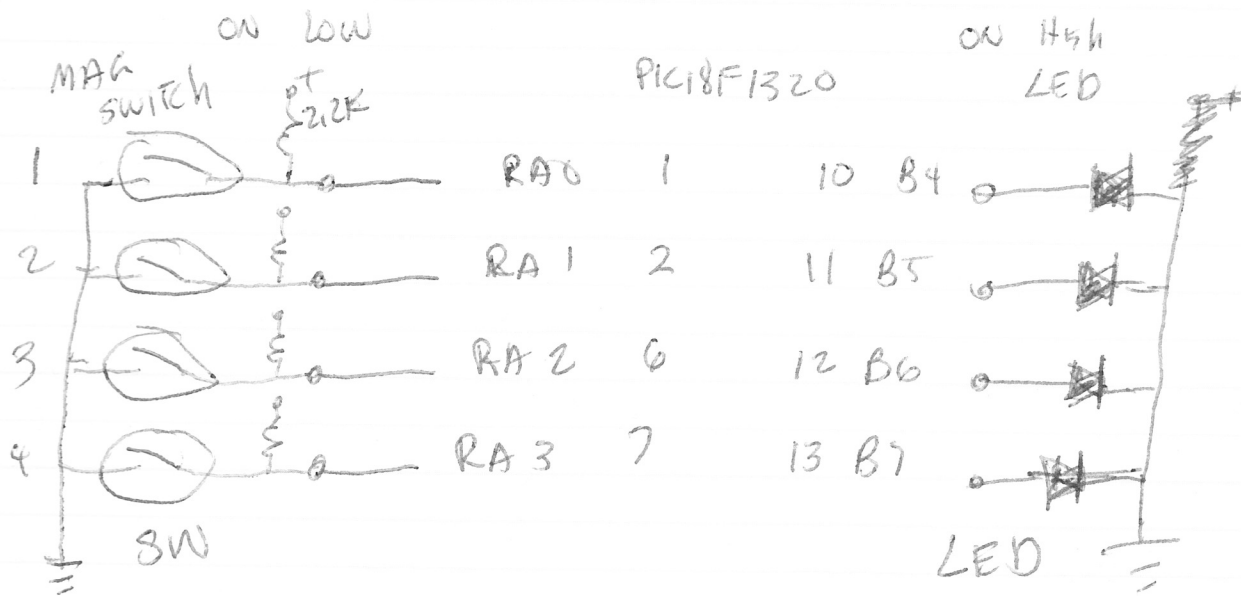 ON LOW
ON HIgh
MAG SWITCH
+
2.2K
PIC18F1320
LED
+
1 RA0 1 10 B4
2 RA 1 2 11 B5
3 RA 2 6 12 B6
4 RA 3 7 13 B7
SW
LED